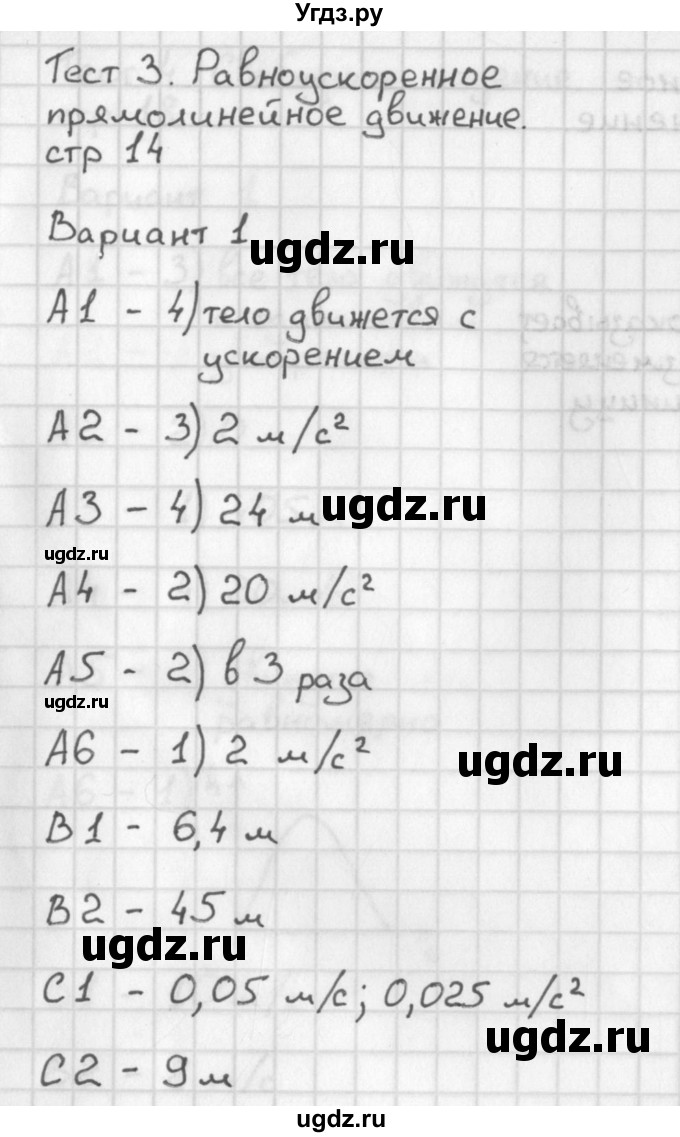 Угдз.ру
Тест 3. Равноускоренное
прямолинейное движение.
стр 14
Вариант 1
ugdz.ru
А1 - 4) тело движется с
ускорением
А2 - 3) 2 м/с²
А3 - 4) 24 м
ugdz.ru
ugdz.ru
А4 - 2) 20 м/с²
А5 - 2) в 3 раза
ugdz.ru
А6 - 1) 2 м/с²
ugdz.ru
В1 - 6,4 м
В2 - 45 м
ugdz.ru
С1 - 0,05 м/с; 0,025 м/с²
ugdz.ru
С2 - 9 м
ugdz.ru